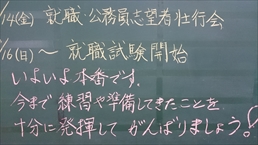 /14(金) 就職・公務員志望者壮行会
/16(日)～就職試験開始
いよいよ本番です。
今まで練習や準備してきたことを
十分に発揮してがんばりましょう!